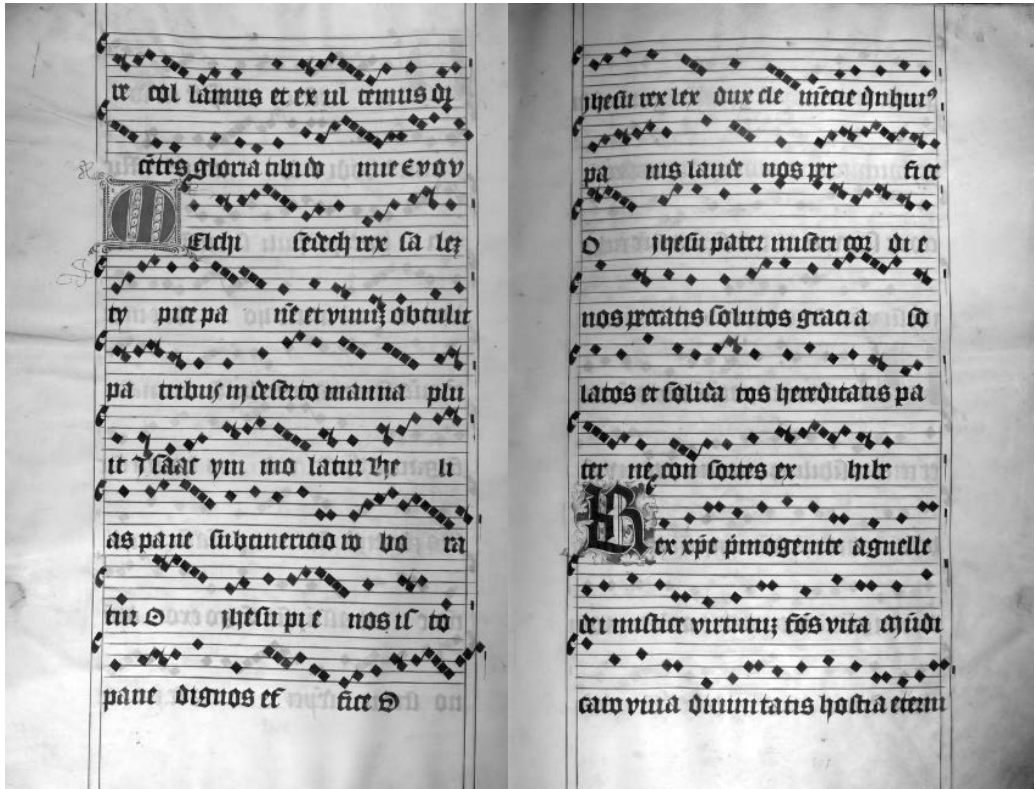 te col lamus et ex ul temus di
cētes gloria tibi do mīe Evov
MElchi sedech rex sa leȝ
ty pice pa nē et vinuȝ obtulit
pa tribus in deserto manna plu
it ysaac ym mo latur he li
as pane subcinericio ro bo ra
tur O jhesu pi e nos is to
pane dignos ef fice O
jhesu rex lex dux cle mēcie
pa nis laude nos per fi ce
O jhesu pater miseri cor di e
nos peccatis solutos gracia so
latos et solida tos hereditatis pa
ter ne con sortes ex hibe
Rex xpē pͥmogenite agnelle
dei mistice virtutuȝ fōs vita mūdi
caro viva divinitatis hostia eterni